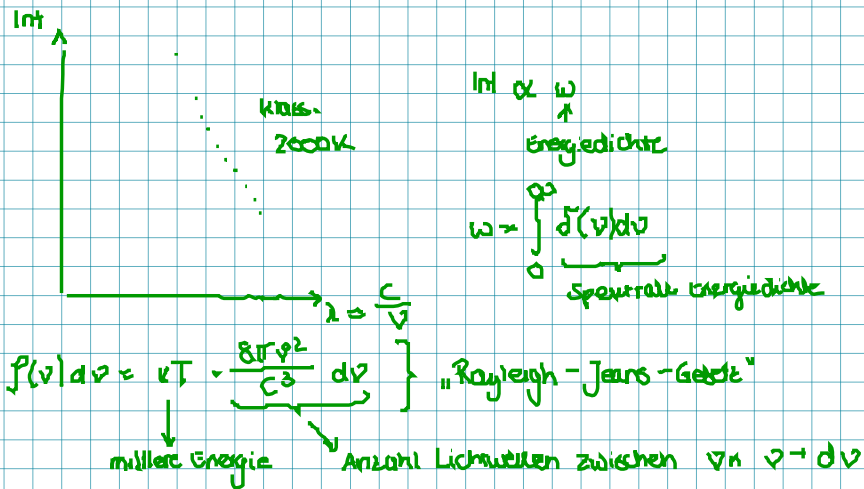 Int
Int ∝ ω
klass.
2000K
Energiedichte
ω = ∫₀^∞ ρ(ν)dν
spektrale Energiedichte
λ = c/ν
ρ(ν)dν = kT · 8πν²/c³ dν } „Rayleigh-Jeans-Gesetz"
mittlere Energie
Anzahl Lichtwellen zwischen ν+dν